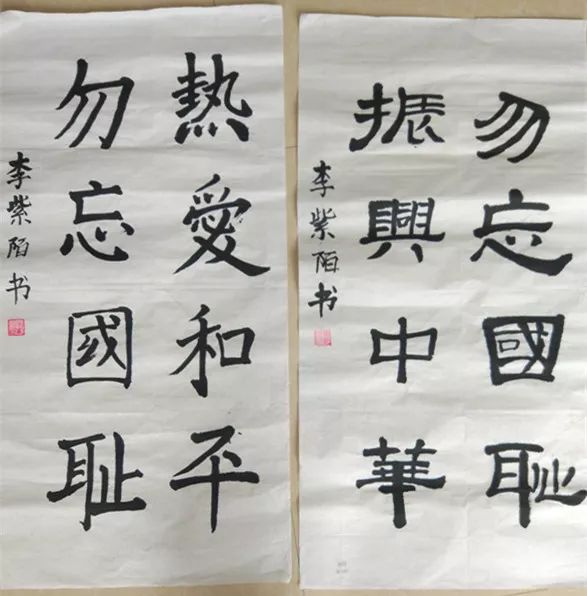 熱愛和平
勿忘國耻
李紫陌书
勿忘國恥
振興中華
李紫陌书